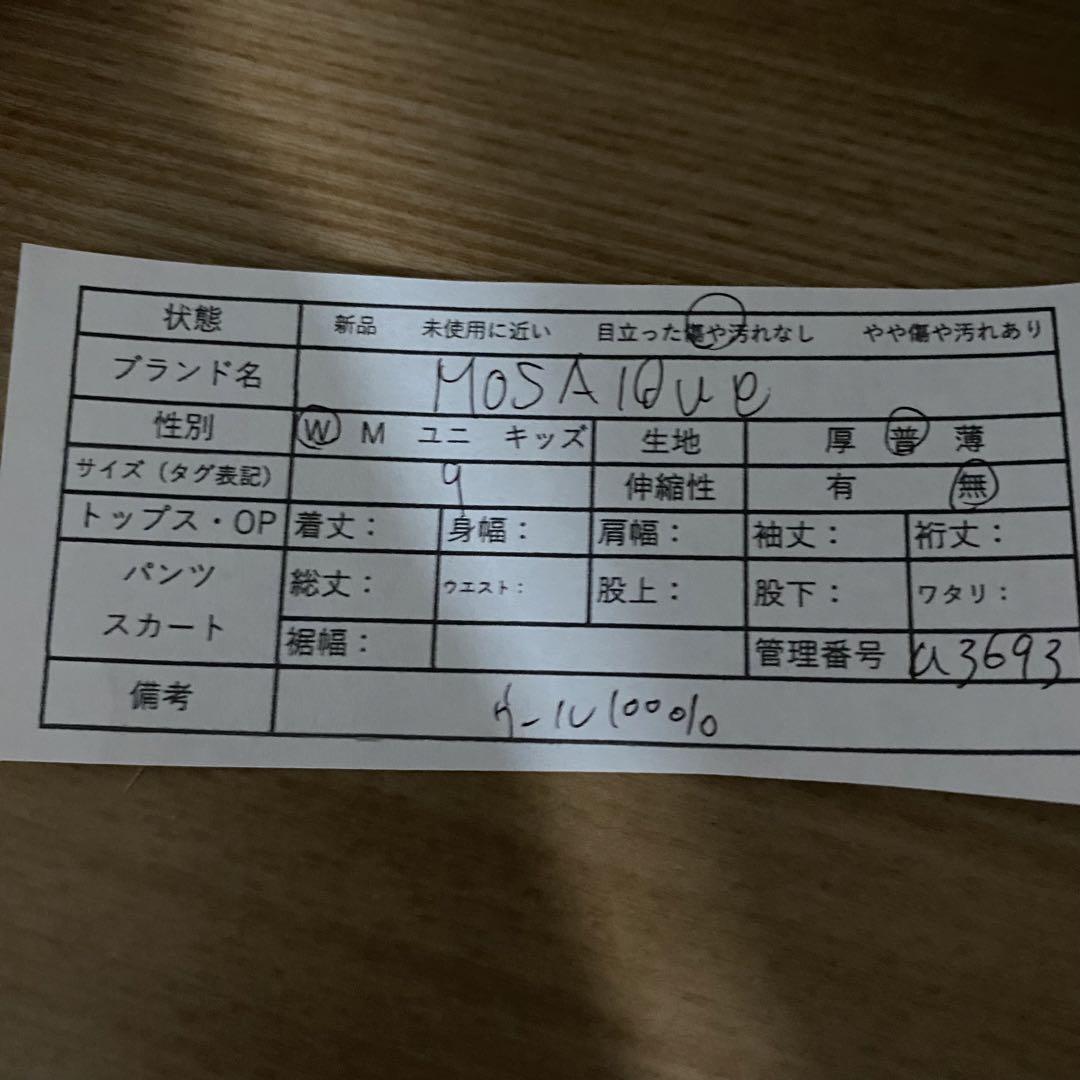 状態 新品 未使用に近い 目立った傷や汚れなし やや傷や汚れあり
ブランド名 MOSAIQUe
性別 W M ユニ キッズ 生地 厚 普 薄
サイズ（タグ表記） 9 伸縮性 有 無
トップス・OP 着丈： 身幅： 肩幅： 袖丈： 裄丈：
パンツ スカート 総丈： ウエスト： 股上： 股下： ワタリ：
裾幅： 管理番号 a3693
備考 ウール100%